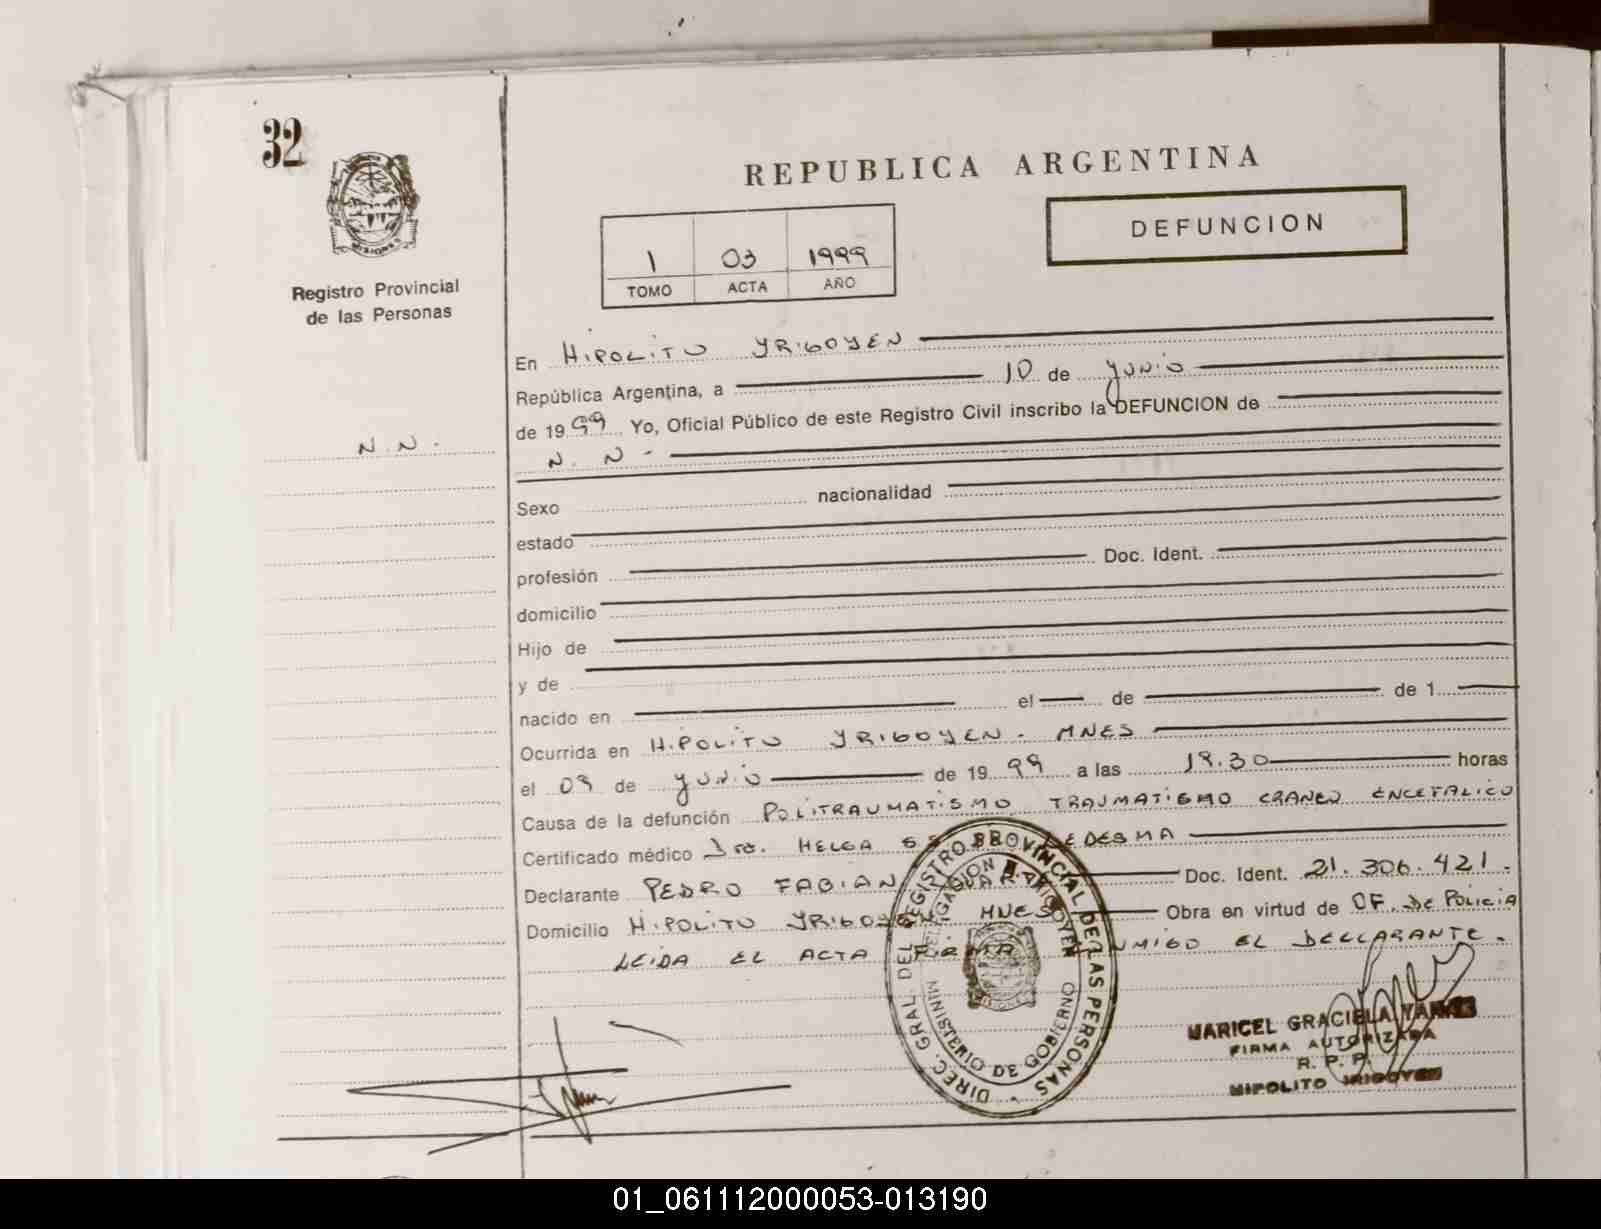 32
REPUBLICA ARGENTINA
DEFUNCION
1 03 1999
TOMO ACTA AÑO
MISIONES
Registro Provincial
de las Personas
N.N.
En HIPOLITO YRIGOYEN
República Argentina, a 10 de JUNIO
de 1999 Yo, Oficial Público de este Registro Civil inscribo la DEFUNCION de
N. N -
Sexo nacionalidad
estado
profesión Doc. Ident.
domicilio
Hijo de
y de
nacido en el de de 1
Ocurrida en HIPOLITO YRIGOYEN - MNES
el 09 de JUNIO de 1999 a las 19.30 horas
Causa de la defunción POLITRAUMATISMO TRAUMATISMO CRANEO ENCEFALICO
Certificado médico Dra. HELGA LEDESMA
Declarante PEDRO FABIAN Doc. Ident. 21.306.421.
Domicilio HIPOLITO YRIGOYEN MNES Obra en virtud de OF. DE POLICIA
LEIDA EL ACTA FIRMA CONMIGO EL DECLARANTE.
DIREC. GRAL. DEL REGISTRO PROVINCIAL DE LAS PERSONAS
DELEGACION H. YRIGOYEN
MINISTERIO DE GOBIERNO
MARICEL GRACIELA
FIRMA AUTORIZADA
R. P. P.
HIPOLITO IRIGOYEN
01_061112000053-013190